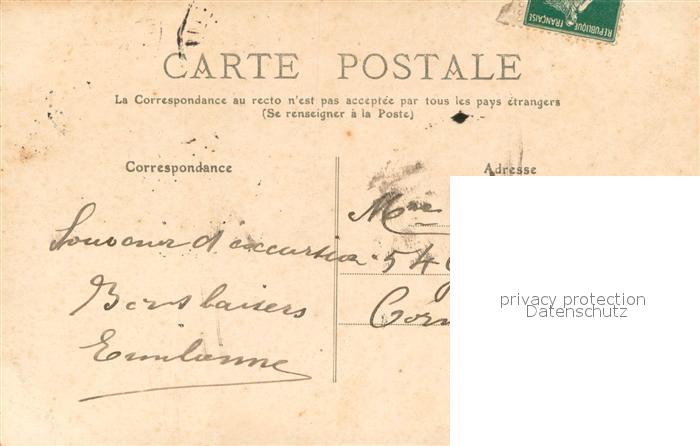 REPUBLIQUE
FRANÇAISE
CARTE POSTALE
La Correspondance au recto n'est pas acceptée par tous les pays étrangers
(Se renseigner à la Poste)
Correspondance
Adresse
Mme
Souvenir d'excursion
54
Bons baisers
Corn
privacy protection
Datenschutz